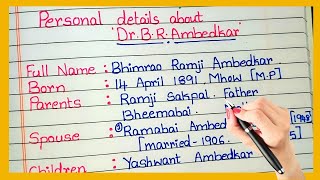 Personal details about
'Dr. B. R. Ambedkar'
Full Name : Bhimrao Ramji Ambedkar.
Born : 14 April 1891. Mhow [M.P]
Parents : Ramji Sakpal. Father
Bheemabai.
Spouse : ① Ramabai Ambed
[married-1906.
Children : Yashwant Ambedkar